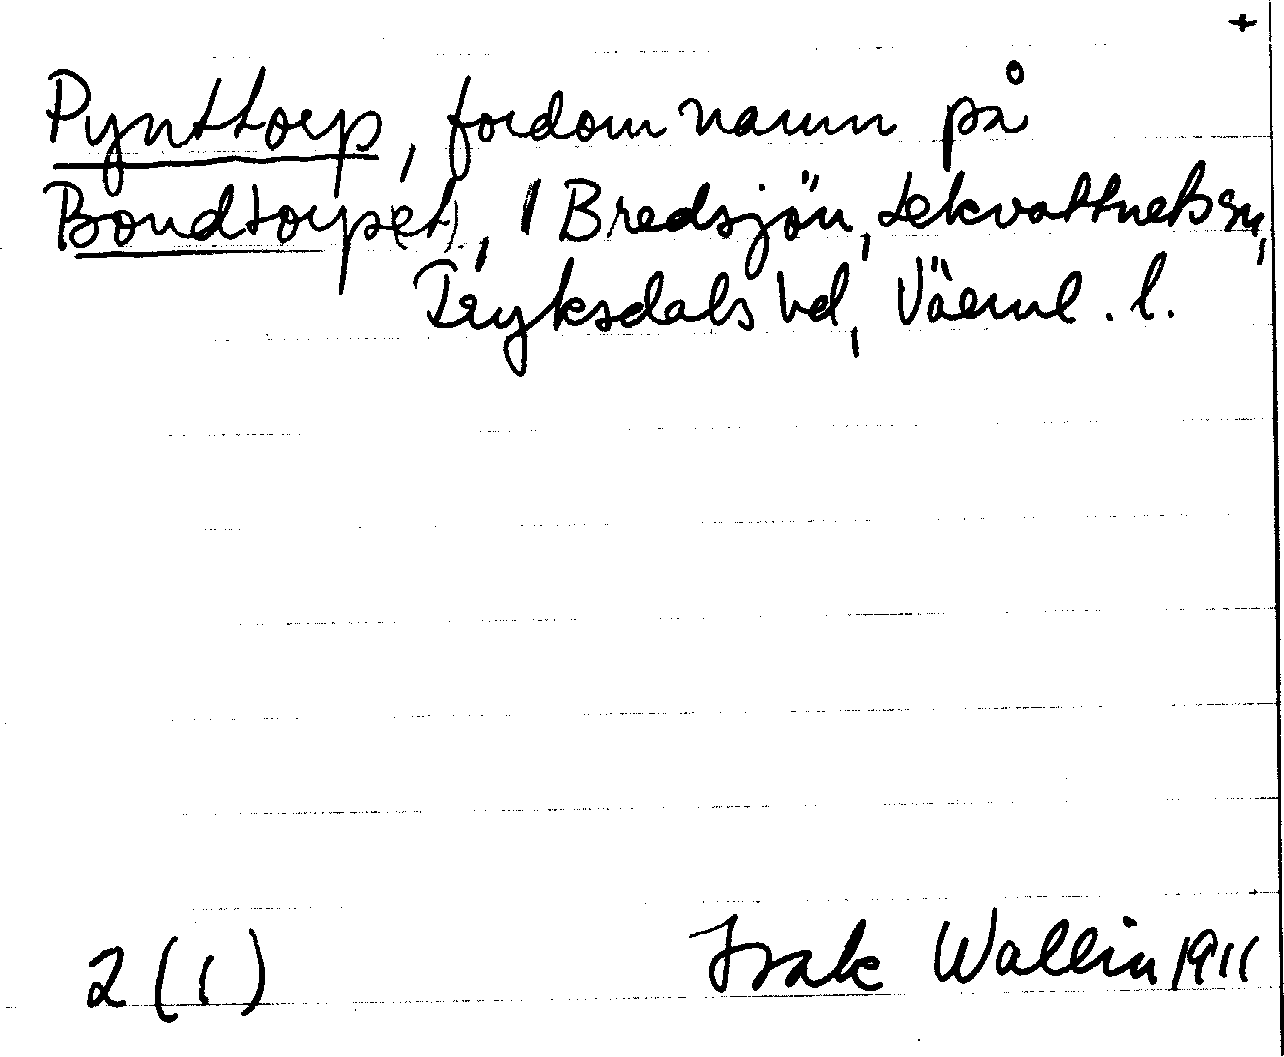 +
Pynttorp, fordom namn på
Bondtorp(et), 1 Bredsjön, Lekvattnets sn,
Fryksdals hd, Värml. l.
2 (1) Isak Wallin 1911